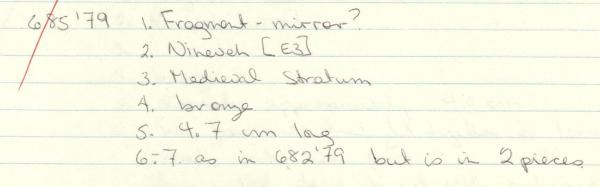 685'79 1. Fragment - mirror?
2. Nineveh [E3]
3. Medieval Stratum
4. bronze
5. 4.7 cm long
6-7. as in 682'79 but is in 2 pieces.